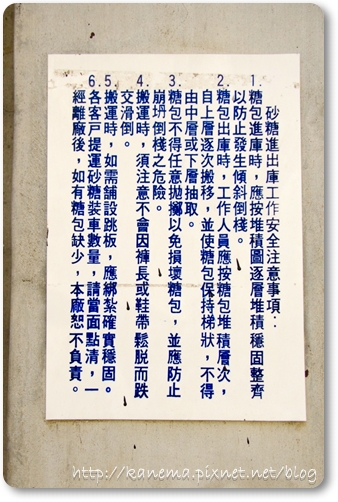 砂糖進出庫工作安全注意事項：
1.
糖包進庫時，應按堆積圖逐層堆積穩固整齊
以防止發生傾斜倒棧。
2.
糖包出庫時，工作人員應按糖包堆積層次，
自上層逐次搬移，並使糖包保持梯狀，不得
由中層或下層抽取。
3.
糖包不得任意拋擲以免損壞糖包，並應防止
崩坍倒棧之危險。
4.
搬運時，須注意不會因褲長或鞋帶鬆脫而跌
交滑倒。
5.
搬運時，如需舖設跳板，應綁紮確實穩固。
6.
各客戶提運砂糖裝車數量，請當面點清，一
經離廠後，如有糖包缺少，本廠恕不負責。
http://kanema.pixnet.net/blog